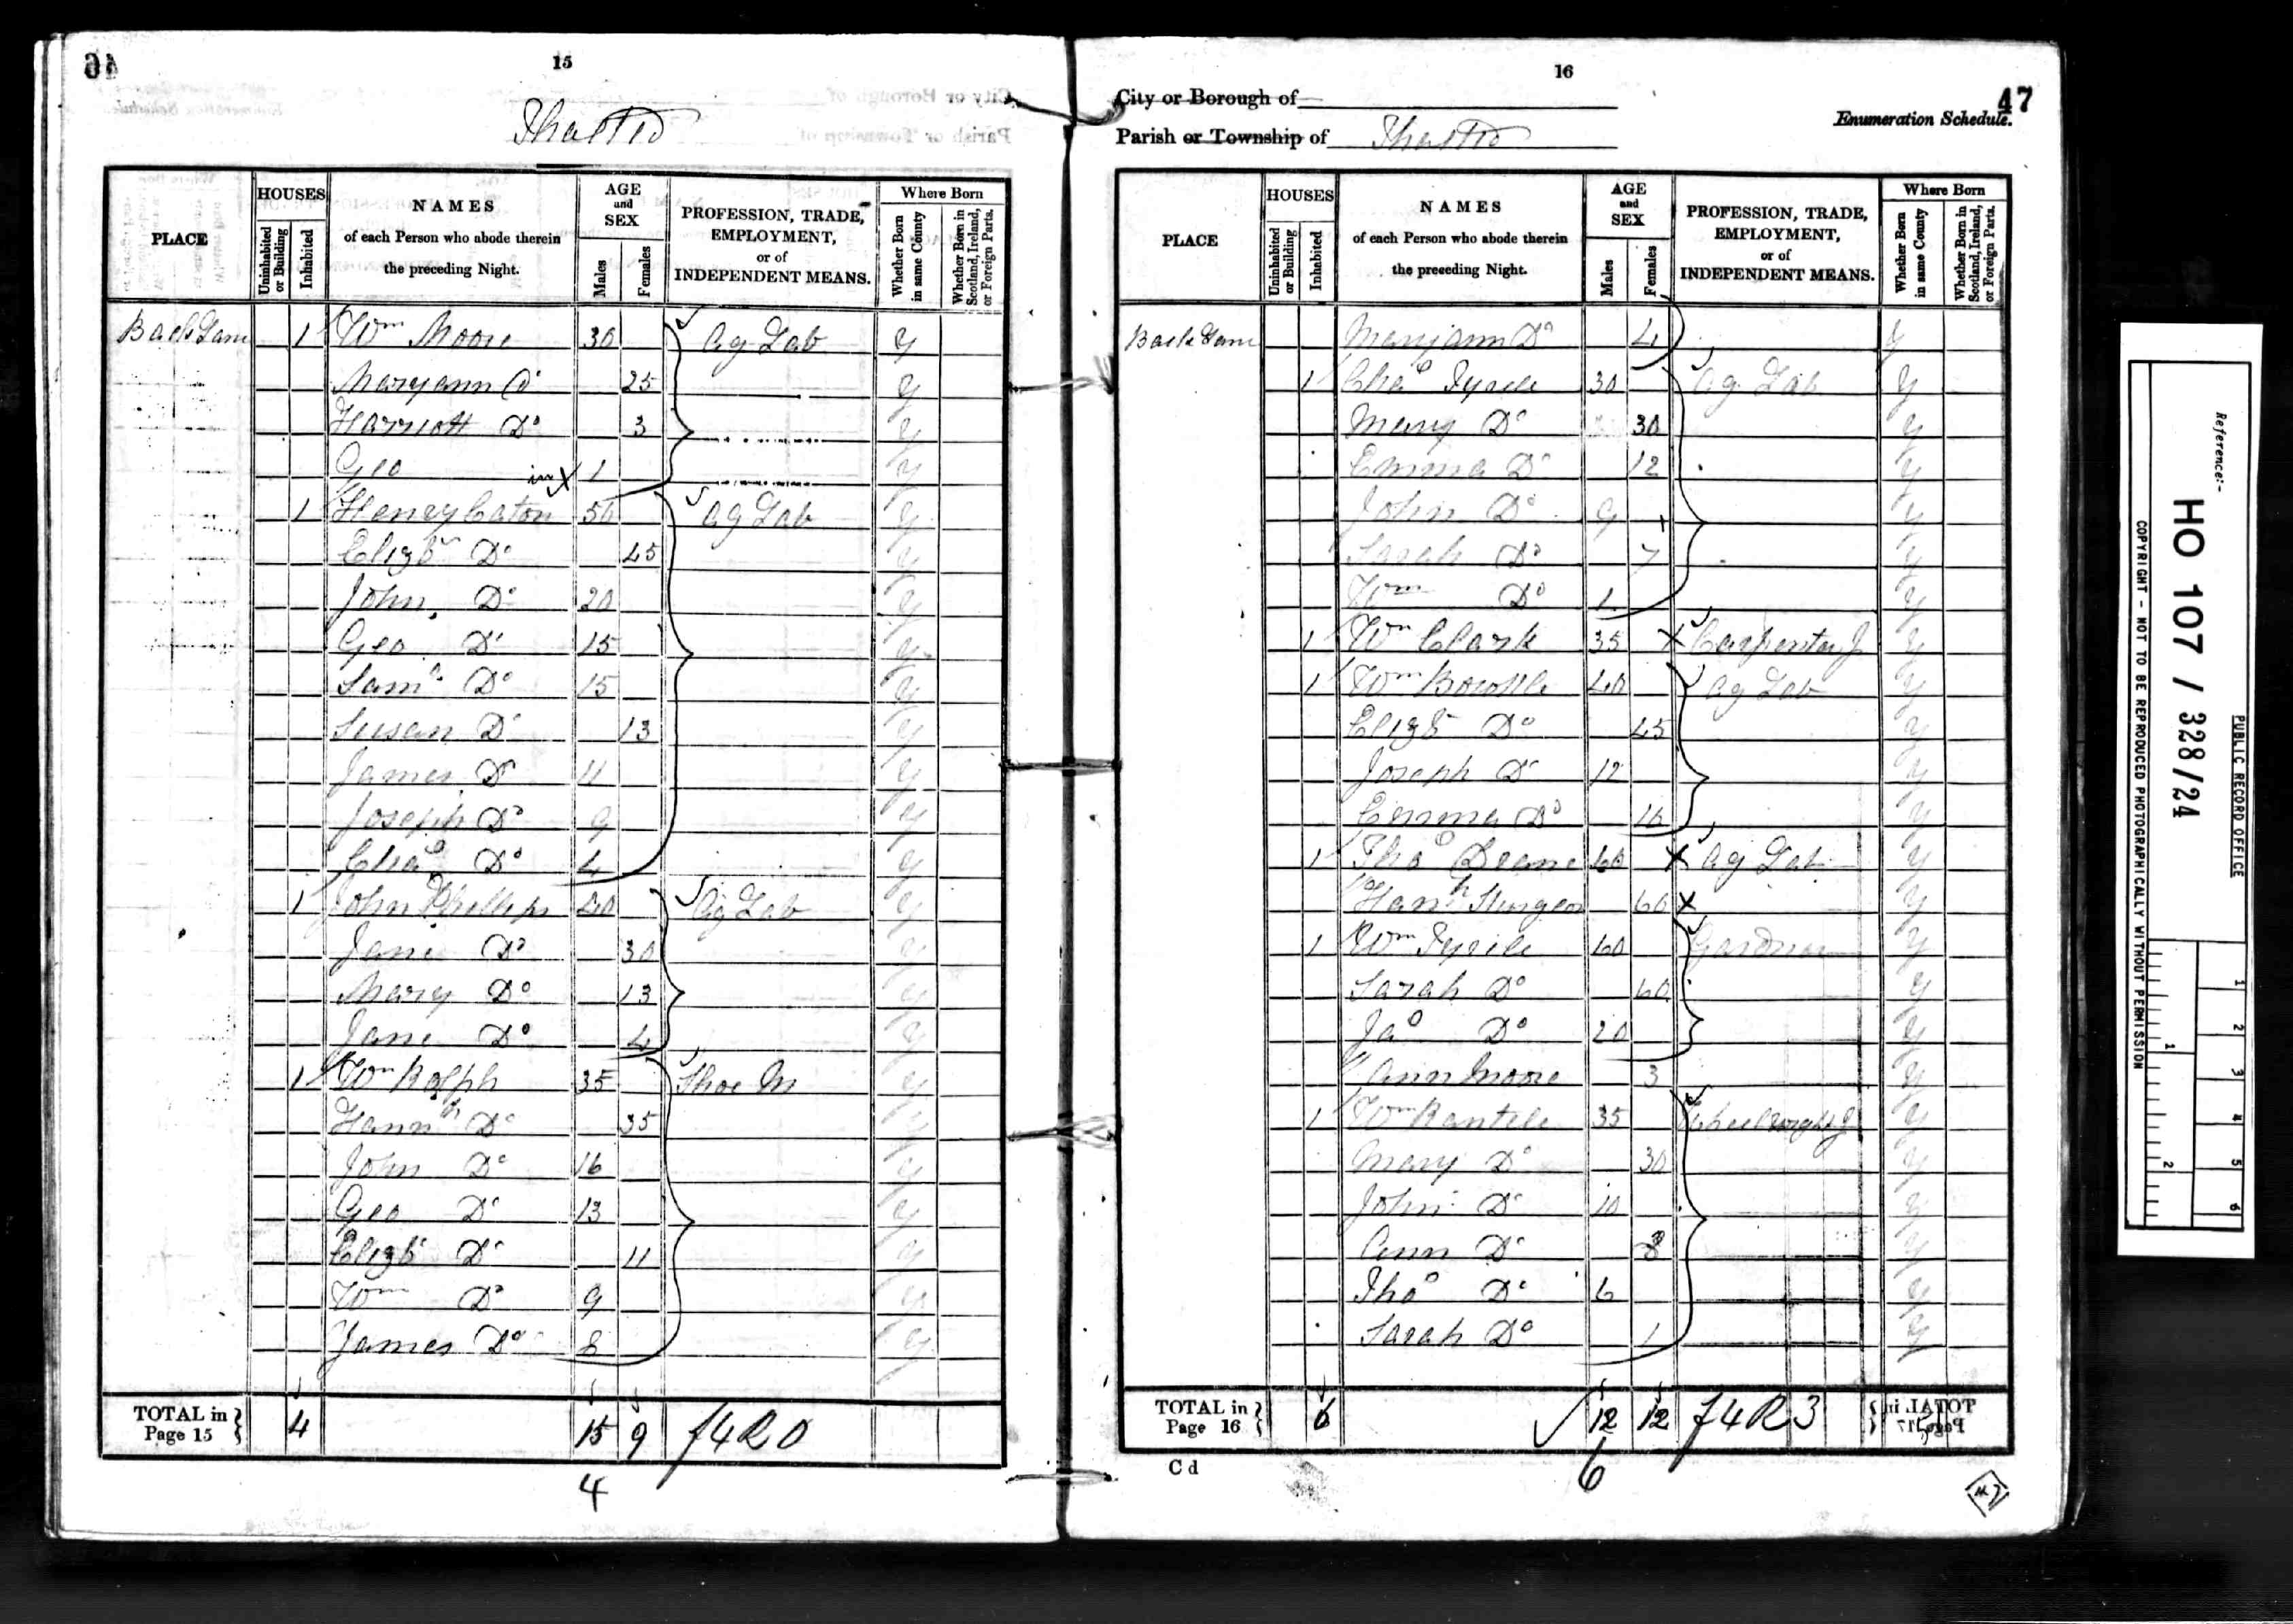 46
15
Thaxted
PLACE
HOUSES
Uninhabited or Building
Inhabited
NAMES
of each Person who abode therein
the preceding Night.
AGE
and
SEX
Males
Females
PROFESSION, TRADE,
EMPLOYMENT,
or of
INDEPENDENT MEANS.
Where Born
Whether Born in same County
Whether Born in Scotland, Ireland, or Foreign Parts.
Back Lane 1 Wm Moore 30 Ag Lab y
Maryann Do 25 y
Harriott Do 3 y
Geo 1 y
1 Henry Caton 50 Ag Lab y
Elizb Do 45 y
John Do 20 y
Geo Do 15 y
Saml Do 15 y
Susan Do 13 y
James Do 11 y
Joseph Do 9 y
Chas Do 4 y
1 John Phillips 40 Ag Lab y
Jane Do 30 y
Mary Do 13 y
Jane Do 4 y
1 Wm Ralph 35 Shoe M y
Hannh Do 35 y
John Do 16 y
Geo Do 13 y
Elizb Do 11 y
Wm Do 9 y
James Do 8 y
TOTAL in Page 15 4 15 9 f4R0
4
16
47
City or Borough of
Parish or Township of Thaxted
Enumeration Schedule.
PLACE
HOUSES
Uninhabited or Building
Inhabited
NAMES
of each Person who abode therein
the preceding Night.
AGE
and
SEX
Males
Females
PROFESSION, TRADE,
EMPLOYMENT,
or of
INDEPENDENT MEANS.
Where Born
Whether Born in same County
Whether Born in Scotland, Ireland, or Foreign Parts.
Back Lane Maryann Do 4 y
1 Chas 30 Ag Lab y
Mary Do 30 y
Emma Do 12 y
John Do 9 y
Sarah Do 7 y
Wm Do 1 y
1 Wm Clark 35 Carpenter J y
1 Wm 40 Ag Lab y
Elizb Do 45 y
Joseph Do 12 y
Emma Do 10 y
1 Thos Deane 60 Ag Lab y
Hanh Sturgeon 60 y
1 Wm 60 Gardner y
Sarah Do 60 y
Jas Do 20 y
Ann Moore 3 y
1 Wm 35 Wheelwright J y
Mary Do 30 y
John Do 10 y
Ann Do 8 y
Thos Do 6 y
Sarah Do 1 y
TOTAL in Page 16 6 12 12 f4R3
6
C d
Reference:-
HO 107 / 328/24
PUBLIC RECORD OFFICE
COPYRIGHT - NOT TO BE REPRODUCED PHOTOGRAPHICALLY WITHOUT PERMISSION
1
2
1 2 3 4 5 6